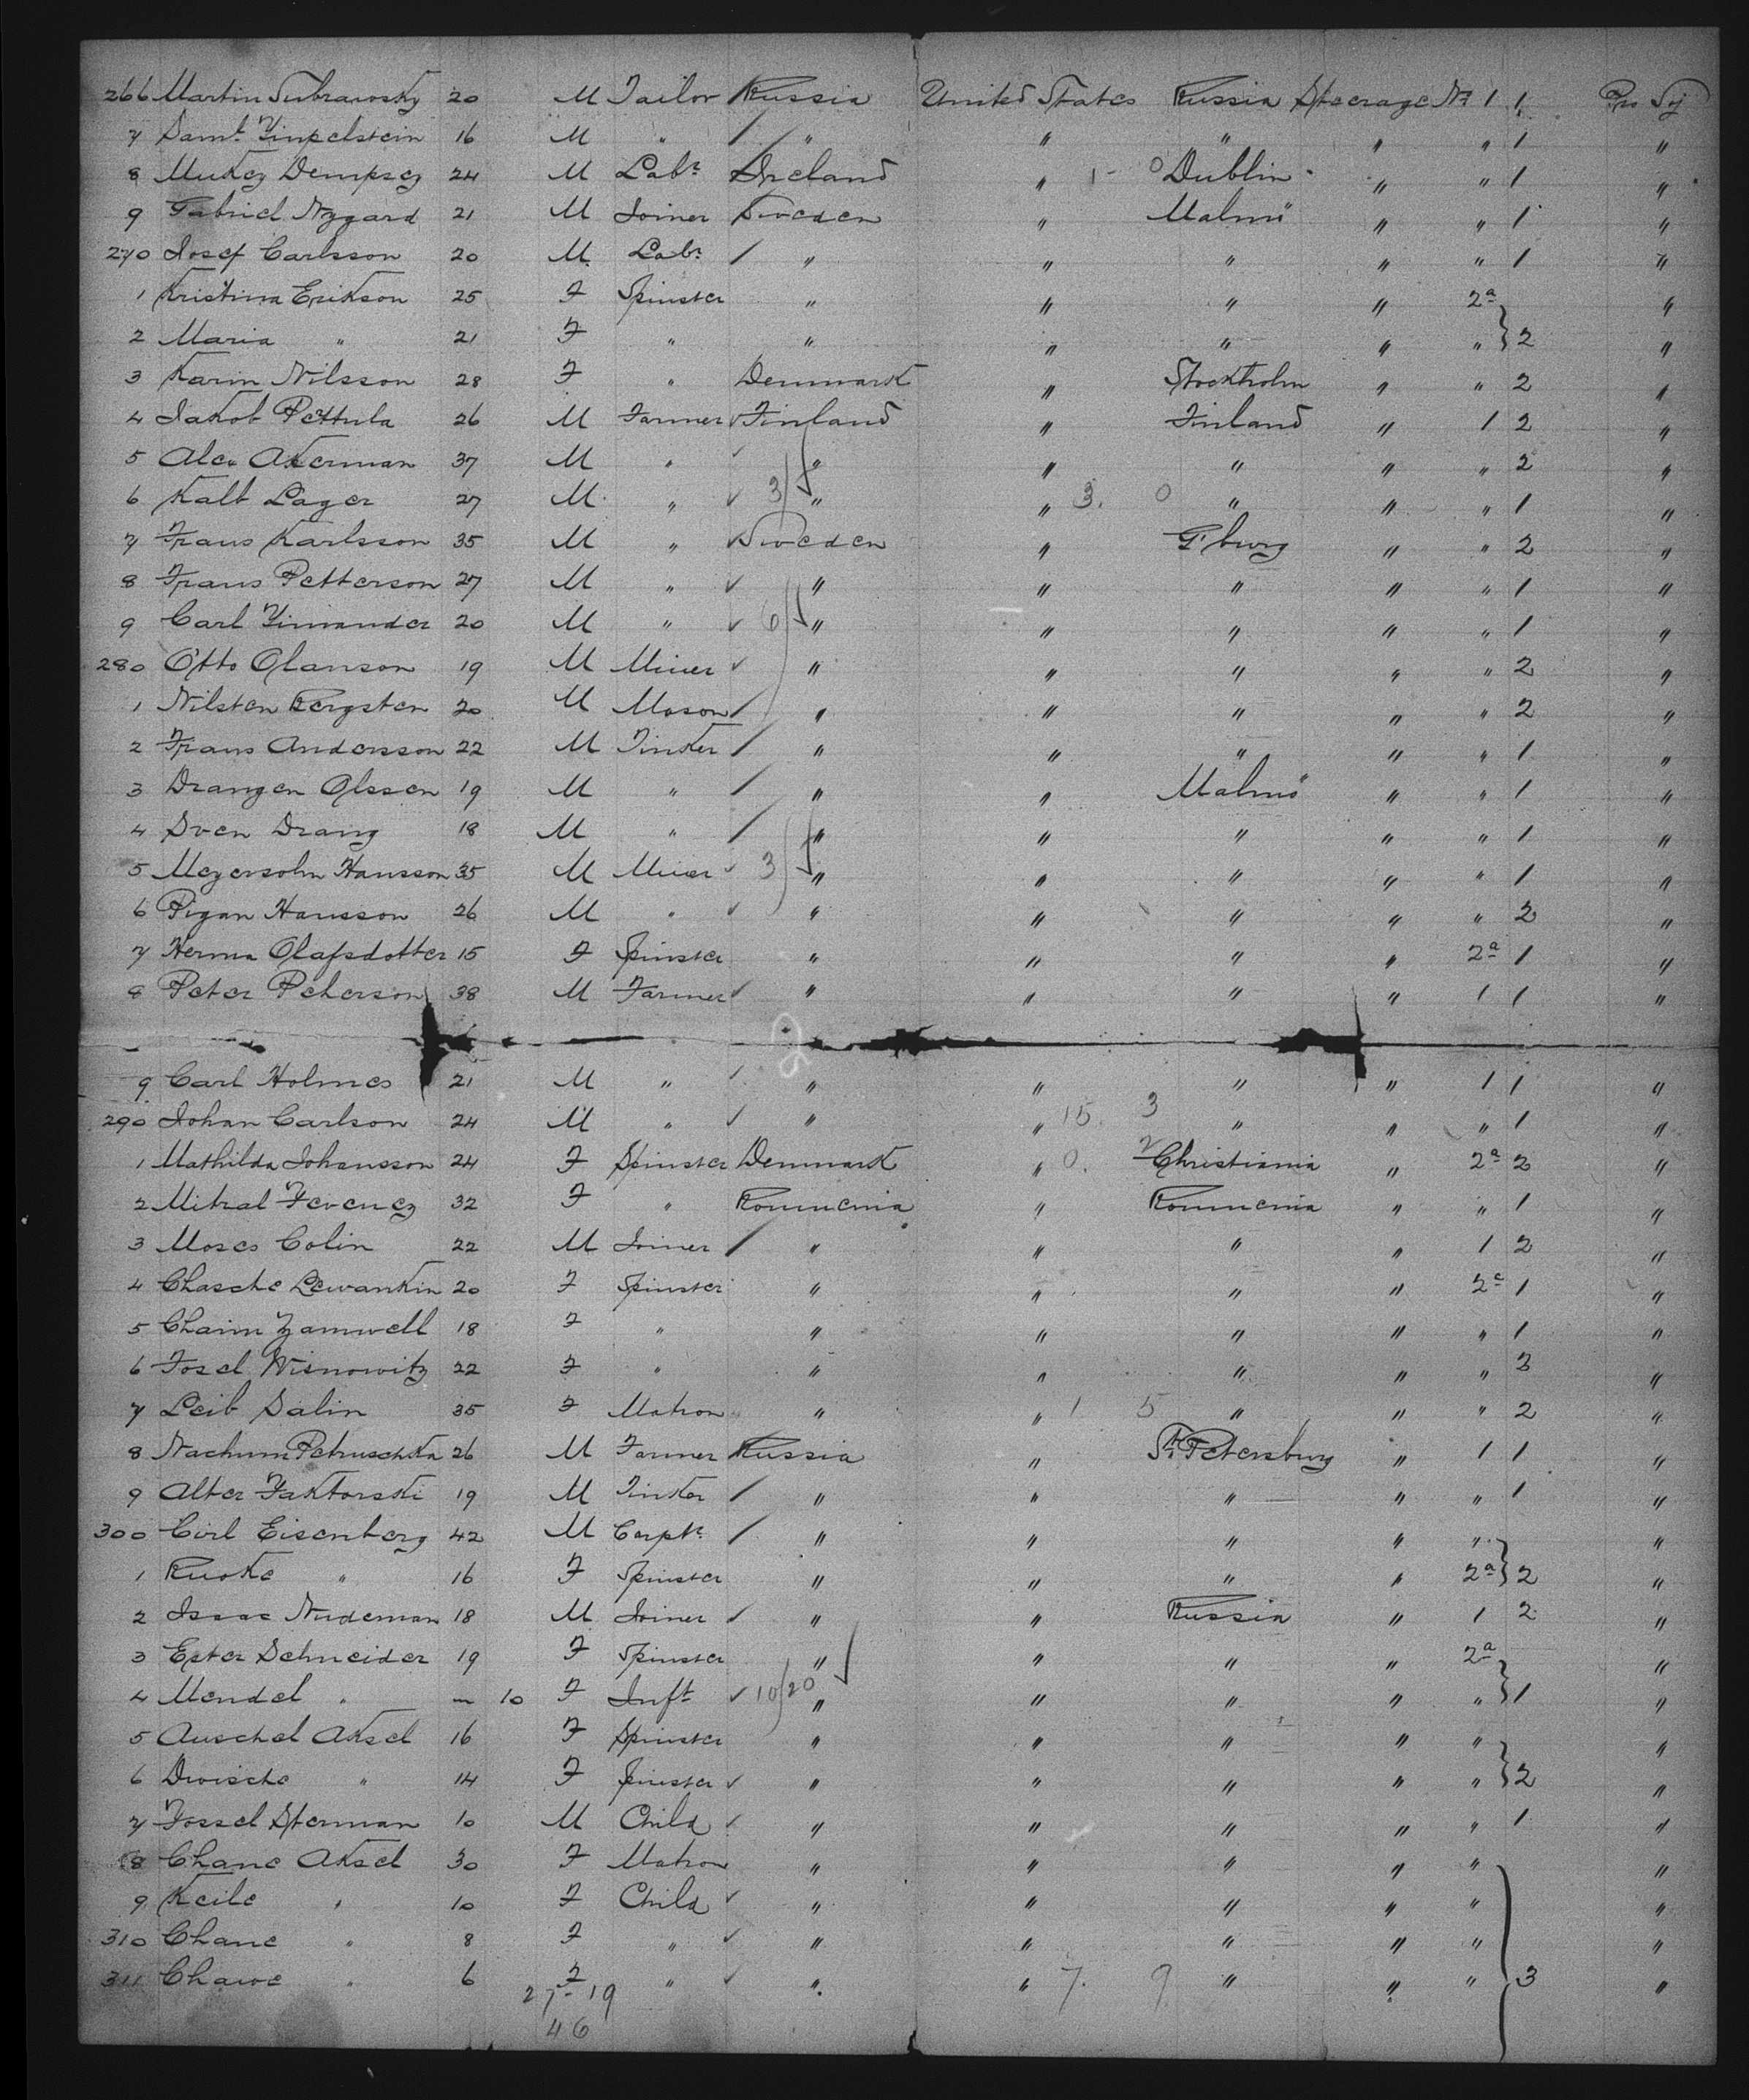 266 Martin Subrawosky 20 M Tailor Russia United States Russia Steerage No 1 1 Pro Sj
7 Saml. Zinpelstein 16 M " / " " " " " 1 "
8 Mukey Dempsey 24 M Labr. Ireland " 1 - 0 Dublin " " 1 "
9 Gabriel Nygard 21 M Joiner Sweden " Malmö " " 1 "
270 Josef Carlsson 20 M Labr. / " " " " " 1 "
1 Kristina Erikson 25 F Spinster " " " " 2a "
2 Maria " 21 F " " " " " " } 2 "
3 Karin Nilsson 28 F " Denmark " Stockholm " " 2 "
4 Jakob Pettula 26 M Farmer ✓ Finland " Finland " 1 2 "
5 Alex Akerman 37 M " ✓ " " " " " 2 "
6 Kalb Lager 27 M " ✓ 3 " " 3. 0 " " " 1 "
7 Frans Karlsson 35 M " ✓ Sweden " G'burg " " 2 "
8 Frans Petterson 27 M " ✓ " " " " " 1 "
9 Carl Zimander 20 M " ✓ 6 " " " " " 1 "
280 Otto Olanson 19 M Miner ✓ " " " " " 2 "
1 Nilsten Bergsten 20 M Mason / " " " " " 2 "
2 Frans Andersson 22 M Tinker / " " " " " 1 "
3 Drangen Olssen 19 M " / " " Malmö " " 1 "
4 Sven Drang 18 M " / " " " " " 1 "
5 Meyersohn Hansson 35 M Miner ✓ 3 " " " " " 1 "
6 Pigan Hansson 26 M " ✓ " " " " " 2 "
7 Herma Olafsdotter 15 F Spinster " " " " 2a 1 "
8 Peter Peherson 38 M Farmer ✓ " " " " 1 1 "
9 Carl Holmes 21 M " / " " " " 1 1 "
290 Johan Carlson 24 M " ✓ " " 15. 3 " " " 1 "
1 Mathilda Johansson 24 F Spinster Denmark " 0. 2 Christiania " 2a 2 "
2 Mitral Ferency 32 F " Roumenia " Roumenia " " 1 "
3 Moses Colin 22 M Joiner / " " " " 1 2 "
4 Chasche Lewankin 20 F Spinster " " " " 2a 1 "
5 Chaim Zamwell 18 F " " " " " " 1 "
6 Fosel Wisnowitz 22 F " " " " " " 2 "
7 Leib Salin 35 F Matron " " 1 5 " " " 2 "
8 Nachum Petruschka 26 M Farmer Russia " St. Petersburg " 1 1 "
9 Alter Faktorski 19 M Tinker / " " " " " 1 "
300 Cirl Eisenberg 42 M Carptr. / " " " " " "
1 Ruske " 16 F Spinster " " " " 2a } 2 "
2 Isaac Nudeman 18 M Joiner ✓ " " Russia " 1 2 "
3 Ester Schneider 19 F Spinster " " " " 2a "
4 Mendel " — 10 F Inft. ✓ 10/20 " " " " " } 1 "
5 Auschel Aksel 16 F Spinster " " " " " "
6 Dwische " 14 F Spinster ✓ " " " " " } 2 "
7 Fossel Sterman 10 M Child ✓ " " " " " 1 "
8 Chane Aksel 30 F Matron " " " " " "
9 Keile " 10 F Child ✓ " " " " " "
310 Chane " 8 F " ✓ " " " " " "
311 Chawe " 6 F " ✓ " " 7. 9 " " " } 3 "
27 - 19
46